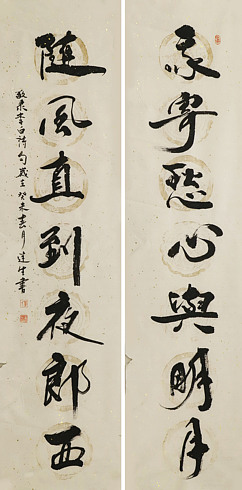 我寄愁心與明月
隨風直到夜郎西
敬录李白诗句歲在癸未春月達生書